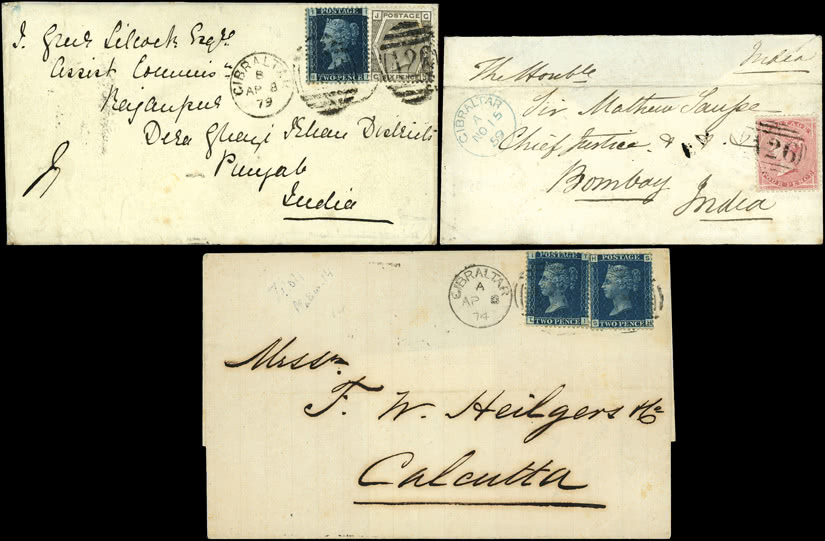 J. Gred Silcock Esqre
Assist Commis
Rajanpur
Dera Ghazi Khan District
Punjab
India
GIBRALTAR
B
AP 8
79
POSTAGE
TWO PENCE
J POSTAGE G
A26
India
The Honble
Sir Mathew Sausse
Chief Justice &
Bombay
India
GIBRALTAR
A
NO 15
59
26
FOUR PENCE
GIBRALTAR
A
AP 8
74
POSTAGE
TWO PENCE
POSTAGE
TWO PENCE
Messrs
F. W. Heilgers & Co
Calcutta